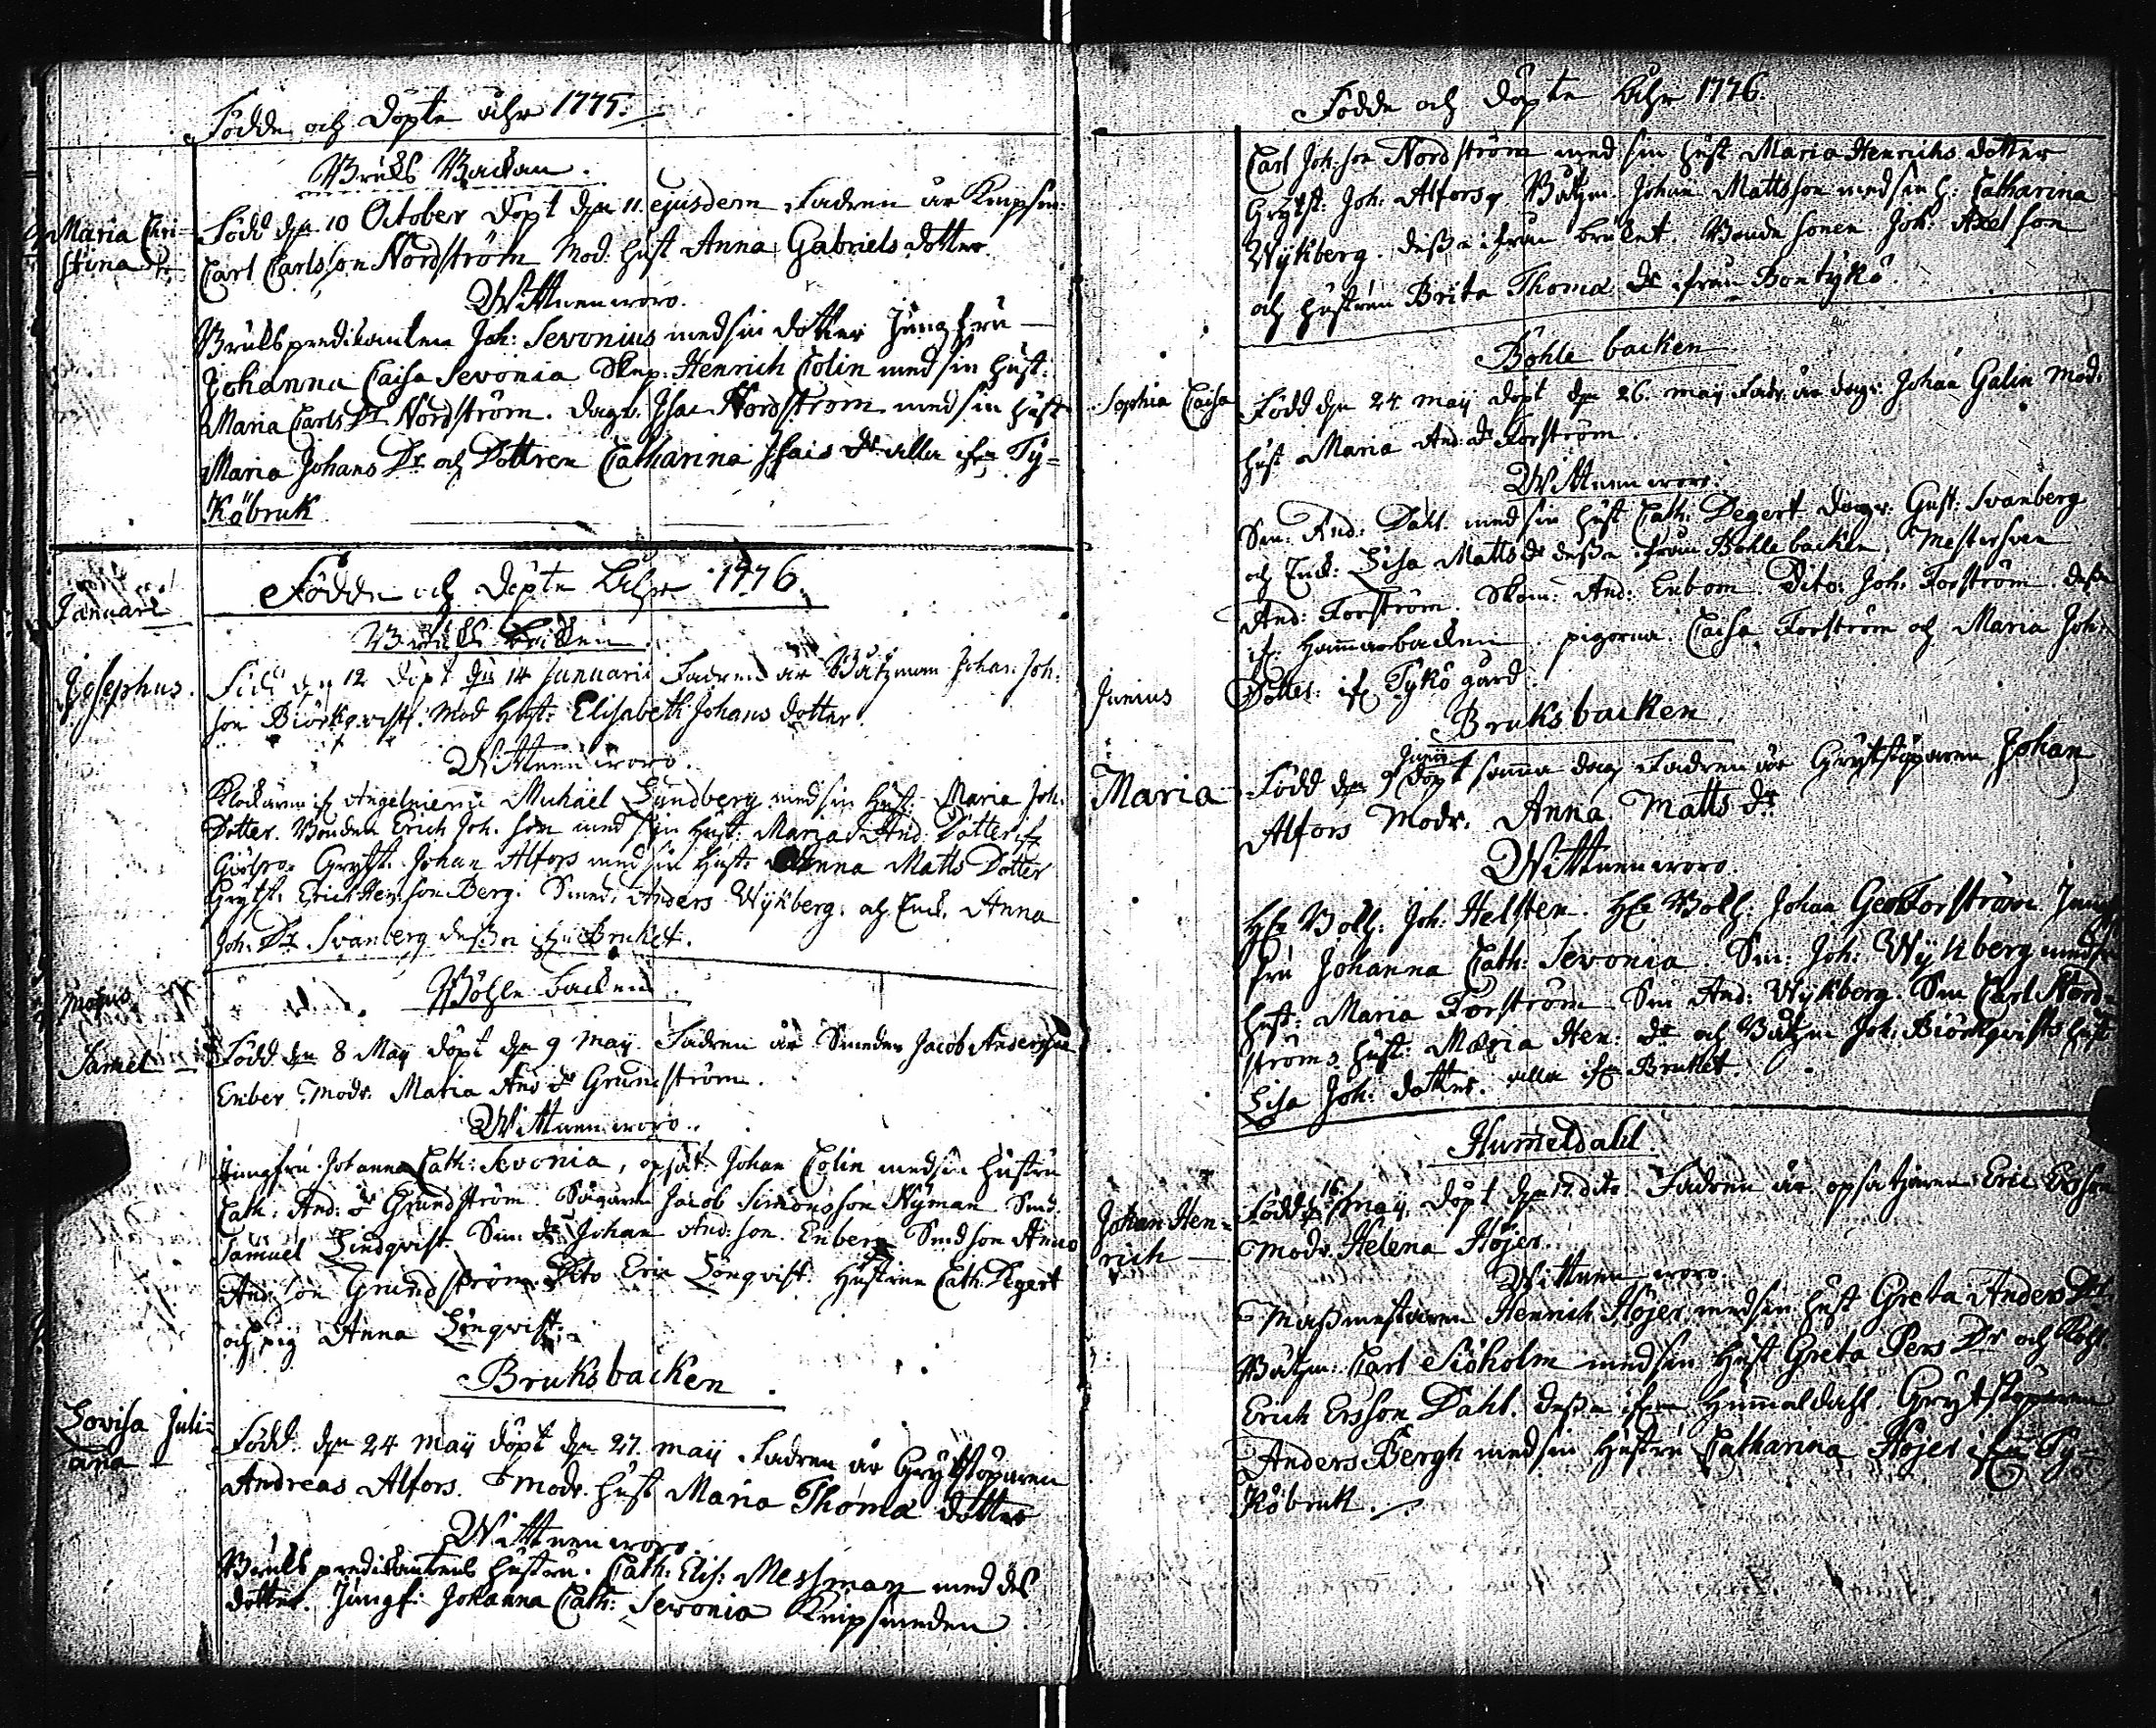 Födde och Döpte åhr 1775.
Bruks Backan.
Maria Chri=
stina
Född den 10 October Döpt den 11. ejusdem Fadren är Knipsm:
Carl Carlsson Nordström Mod. Hust Anna Gabriels dotter.
Wittnen woro.
Bruks predikanten Joh: Sevonius med sin dotter Jungfru
Johanna Caisa Sevonia Henrich Colin med sin Hust:
Maria Carls Dr Nordström. Dagk. Isac Nordström med sin Hust
Maria Johans Dr och Dottren Catharina Isacs dr alla ifrn Ty=
köbruk
Födde och Döpte Åhr 1776.
Januari
Bruks backen.
Josephus.
Född den 12 Döpt den 14 Januarii Fadren är Båtzman Johan Joh:
son Biörkqvist. Mod Hust: Elisabeth Johans dotter.
Wittnen woro.
Klockaren if Michael Sundberg med sin Hust: Maria Joh:
Dotter. Bonden Erich Joh. son med sin Hust: Maria And: Dotter if
Grytst: Johan Alfors med sin Hust: Anna Matts Dotter
Grytst: Erich Hen: son Berg. Smed. Anders Wykberg. och Enck. Anna
Joh: Dr. Svanberg desse ifrån Bruket.
Majus
Böhle backen.
Samel
Född den 8 May döpt den 9 May. Fadren är Smeden Jacob Andersson
Enber Modr. Maria And dr Grundström.
Wittnen woro.
Jungfru Johanna Cath: Sevonia, opsät. Johan Colin med sin Hustru
Cath: And: dr Grundström. Sågaren Jacob Simonsson Nyman Smd.
Samuel Lindqvist. Sm: dr Johan And: son Enberg Smdson
And: son Grundström. Dito Eric Lönqvist. Hustrun Cath. Degert
och pig Anna Lönqvist.
Bruksbacken
Lovisa Juli=
ana
Född. den 24 Maij döpt den 27. Maij Fadren är Grytstöparen
Andreas Alfors. Modr. Hust Maria Thomæ dotter
Wittnen woro.
Bruks predikantens Hustru. Cath: Elis: Messman med des
dotter. Jungf: Johanna Cath: Sevonia Knipsmeden
Födde och Döpte Åhr 1776.
Carl Joh: son Nordström med sin Hust Maria Henrichs dotter
Grytst: Joh: Alfors, Båtzm. Johan Mattsson med sin H: Catharina
Wykberg. desse ifrån bruket. Bonde sonen Joh: Axelsson
och Hustrun Brita Thomæ dr ifrån Bontykö.
Böhle backen
Sophia Caisa
Född den 24 May döpt den 26. May Fadr. är dagk: Johan Galin Mod:
Hust Maria And: dr Forström.
Wittnen woro.
Sm: And: Dahl. med sin Hust Cath: Degert Dagk: Gust: Svanberg
och Enck: Lisa Matts dr desse ifrån Bohle backen. Mestersven
And: Forström. And: Enbom. Dito: Joh: Forström. desse
if: Hammarbacken pigorna. Caisa Forström och Maria Joh:
Dotter: if Tykö gård.
Junius
Bruksbacken
Maria
Junii
Född den 9 döpt samma dag Fadren är Grytstöparen Johan
Alfors Modr. Anna Matts dr.
Wittnen woro.
Joh: Helsten. Johan Geo Forström Jung
fru Johanna Cath: Sevonia. Sm: Joh: Wykberg med sin
Hust: Maria Forström Sm And: Wykberg. Sm Carl Nord=
ströms Hust: Maria Hen: dr och Båtzm Joh: Biörkqvists Hust
Lisa Joh: dotter. alla if Bruket.
Hummeldahl.
Johan Hen=
rich
Född d 16 May, döpt den 17. dito. Fadren är opsätjaren Eric Ersson
Modr. Helena Höjer.
Wittnen woro
Masmestaren Henrich Höjer med sin Hust Greta Anders Dr
Båtzm: Carl Siöholm med sin Hust Greta Pers Dr och
Erich Ersson Dahl. desse ifrn Hummaldahl. Grytstöparen
Anders Bergh med sin Hustru Catharina Höjer ifrån Ty=
köbruk.